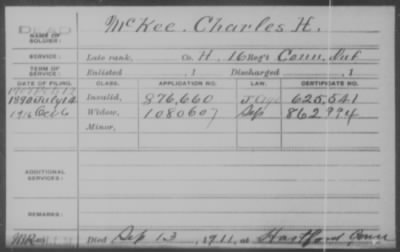 McKee, Charles H.
NAME OF SOLDIER:
SERVICE: Late rank, Co. H, 16 Reg't Conn. Inf
TERM OF SERVICE: Enlisted , 1 Discharged , 1
DATE OF FILING. CLASS. APPLICATION NO. LAW. CERTIFICATE NO.
1890 July 14 Invalid, 876,660 625,541
Oct 6 Widow, 1080607 862,994
Minor,
ADDITIONAL SERVICES:
REMARKS:
Died Sep 13, 1911, at Hartford Conn